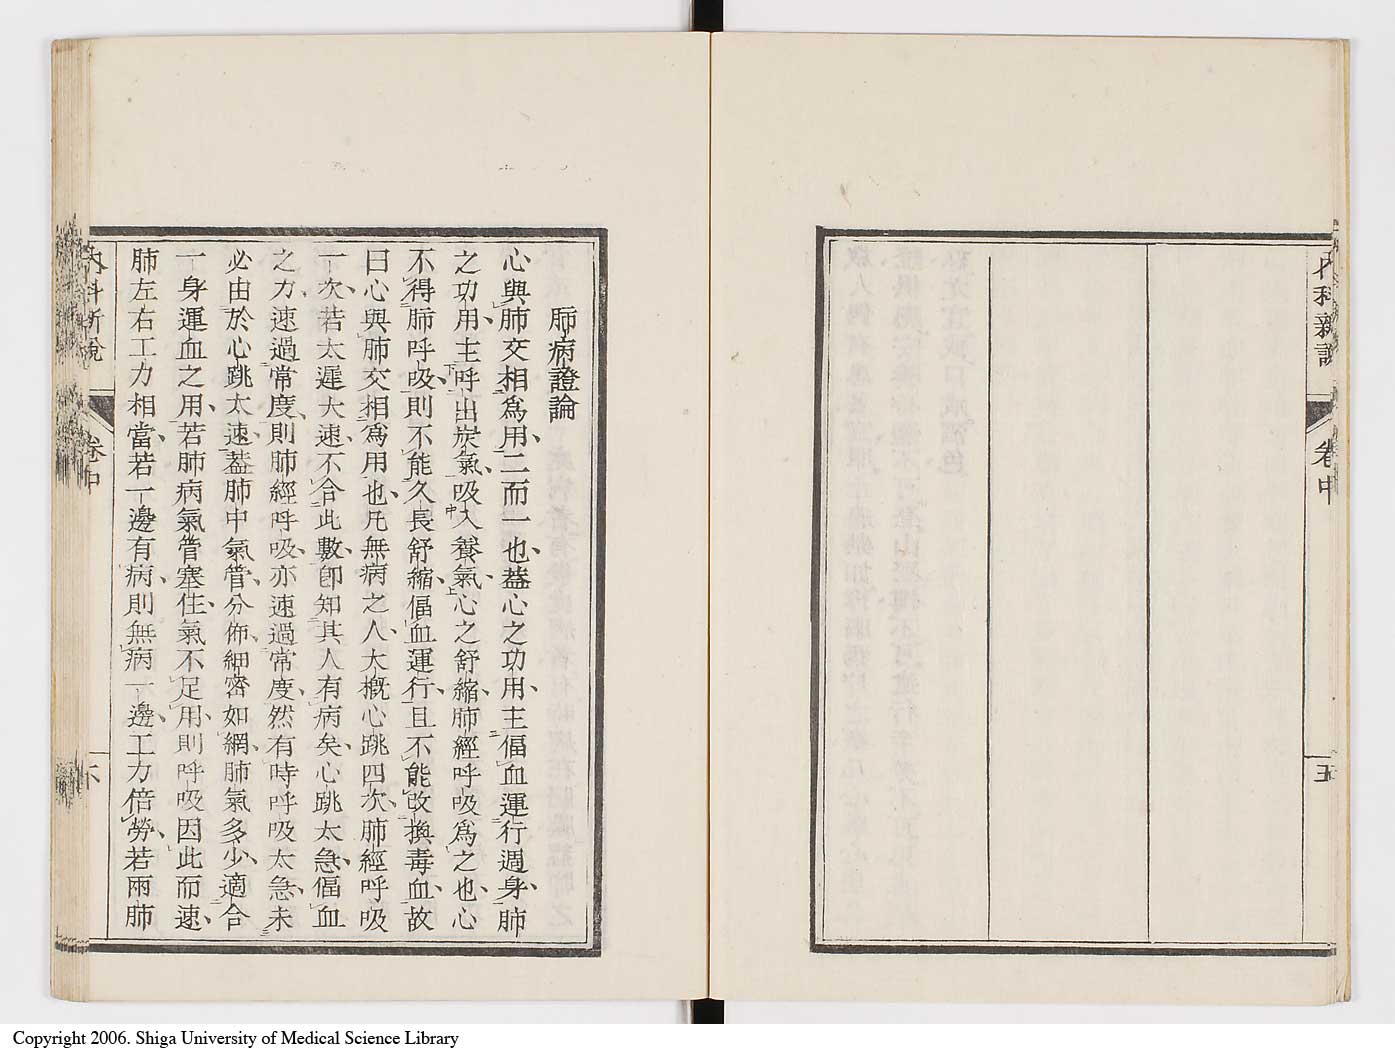 內科新說
卷中
五
肺病證論
心與肺交相爲用、二而一也、葢心之功用、主偪血運行週身、肺
之功用、主呼出炭氣、吸入養氣、心之舒縮、肺經呼吸爲之也、心
不得肺呼吸、則不能久長舒縮、偪血運行、且不能改換毒血、故
曰心與肺交相爲用也、凡無病之人、大概心跳四次、肺經呼吸
一次、若太遲太速、不合此數、卽知其人有病矣、心跳太急、偪血
之力、速過常度、則肺經呼吸、亦速過常度、然有時呼吸太急、未
必由於心跳太速、葢肺中氣管、分佈細密如網、肺氣多少、適合
一身運血之用、若肺病氣管塞住、氣不足用、則呼吸因此而速、
肺左右工力相當、若一邊有病、則無病一邊、工力倍勞、若兩肺
內科新說
卷中
六
Copyright 2006. Shiga University of Medical Science Library